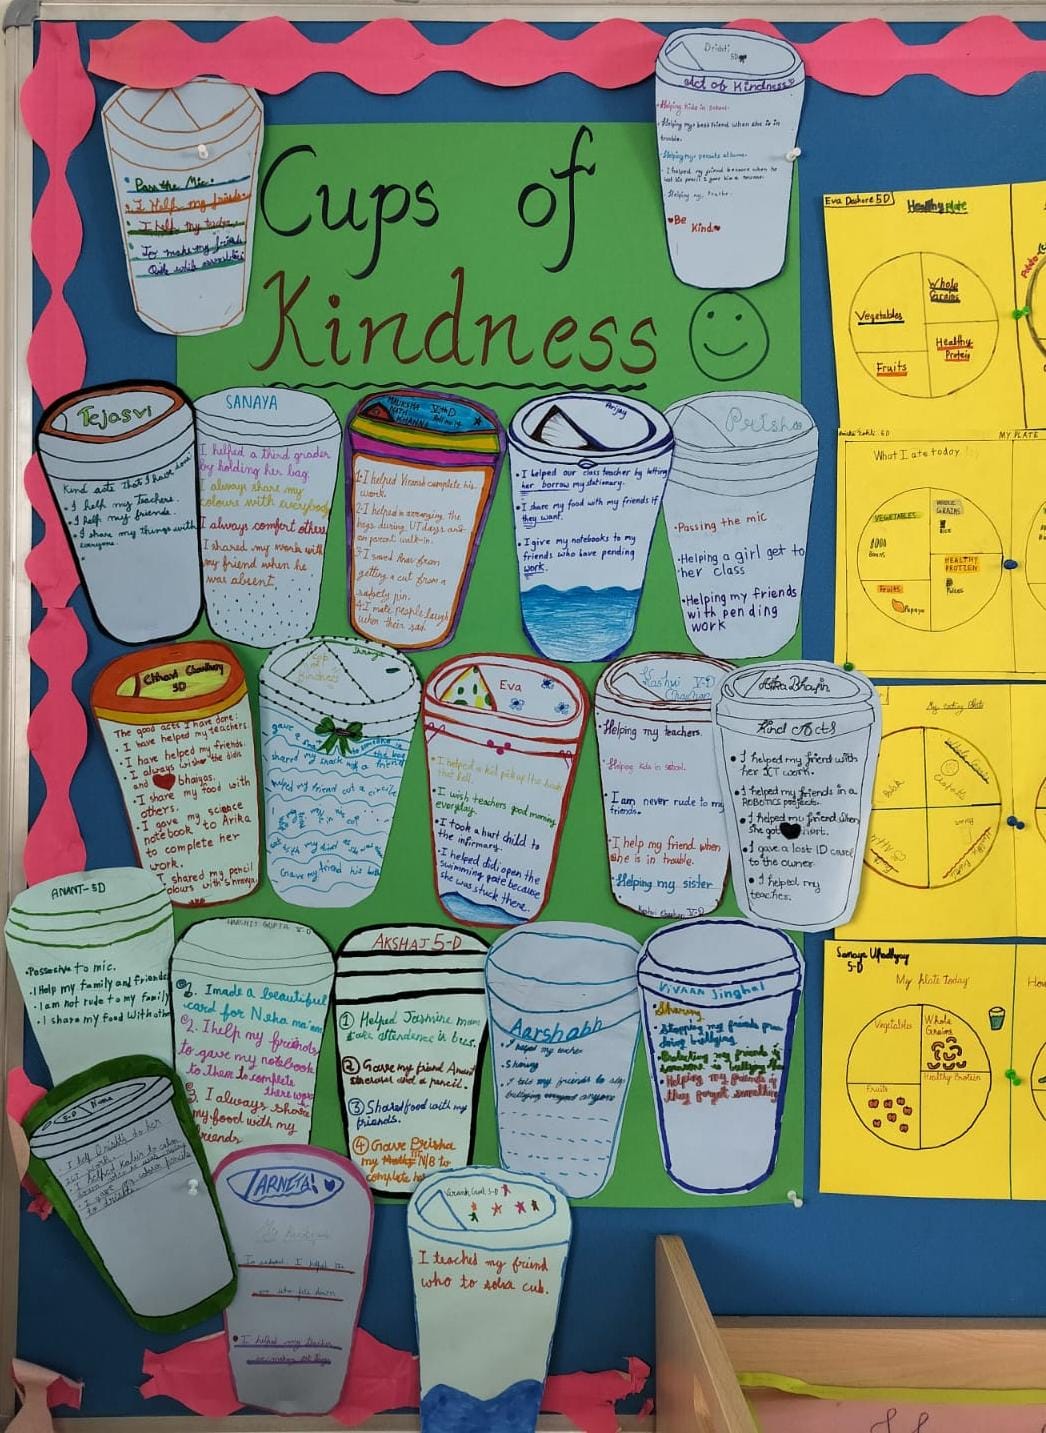 Cups of
Kindness
Pass the Mic.
I Help my friends
I help my teacher
To make my friends
Drishti
5D
Act of Kindness
Helping kids in school.
Helping my best friend when she is in
trouble.
Helping my parents at home.
I helped my friend because when he
lost his pencil I gave him a
Helping my teacher.
Be
Kind
Tejasvi
Kind acts that I have done:
I help my teachers.
I help my friends.
I share my things with
everyone.
SANAYA
I helped a third grader
by holding her bag.
I always share my
colours with everybody
I always comfort others
I shared my work with
my friend when he
was absent.
KHANNA
Vth D
Roll no 14
1. I helped Viransh complete his
work.
2. I helped in arranging the
bags during UT days and
on parent walk-in.
3. I saved Arav from
getting a cut from a
safety pin.
4. I make people laugh
when their sad.
I helped our class teacher by letting
her borrow my stationary.
I share my food with my friends if
they want.
I give my notebooks to my
friends who have pending
work.
Prisha
Passing the mic
Helping a girl get to
her class
Helping my friends
with pending
work
Chhavi Chaudhary
5D
The good acts I have done:
I have helped my teachers.
I have helped my friends.
I always wish the didis
and bhaiyas.
I share my food with
others.
I gave my science
notebook to Arika
to complete her
work.
I shared my pencil
colours with Shraya.
Cup
of
Kindness
shared my snack with a friend
helped my friend cut a circle
Gave my friend his book
Eva
I helped a kid pick up the books
that fell.
I wish teachers good morning
everyday.
I took a hurt child to
the infirmary.
I helped didi open the
swimming gate because
she was stuck there.
Kashvi V-D
Chauhan
Helping my teachers.
Helping kids in school.
I am never rude to my
friends.
I help my friend when
she is in trouble.
Helping my sister
Kashvi Chauhan V-D
Kind Acts
I helped my friend with
her ICT work.
I helped my friends in a
ROBOTICS project.
I helped my friend when
she got hurt.
I gave a lost ID card
to the owner.
I helped my
teacher.
ANANT-5D
Possesive to mic.
I Help my family and friends
I am not rude to my family
I share my food with othe
HARSHIT GUPTA V-D
1. I made a beautiful
card for Neha ma'am
2. I help my friends
to gave my notebook
to them to complete
there work
3. I always share
my food with my
friends
AKSHAJ 5-D
1 Helped Jasmine mam
take attendence in bus.
2 Gave my friend Anant
sharpener and a pencil.
3 Shared food with my
friends.
4 Gave Prisha
my N/B to
complete her
Aarshabh
I helped my teacher
Sharing
I told my friends to stop
bullying anyone
VIVAAN Singhal
Sharing
Stopping my friends from
doing bullying
Protecting my friends if
someone is bullying them
Helping my friends if
they forget something
5-D
I help Drishti to her
ICT work.
I helped Kabir to calm
to drishti
ARNITA!
My Kindness
In school I helped
who fell down
I helped my teacher
5-D
I teached my friend
who to solva cub.
Eva Deshore 5D
Healthy plate
Vegetables
Whole
Grains
Fruits
Healthy
Protein
5D
MY PLATE
What I ate today
VEGETABLES
WHOLE
GRAINS
Beans
Rice
HEALTHY
PROTIEN
Fruits
Papaya
Pulses
My eating plate
Sanaya Upadhyay
5-D
My plate Today
Vegetables
Whole
Grains
Fruits
Healthy Protein